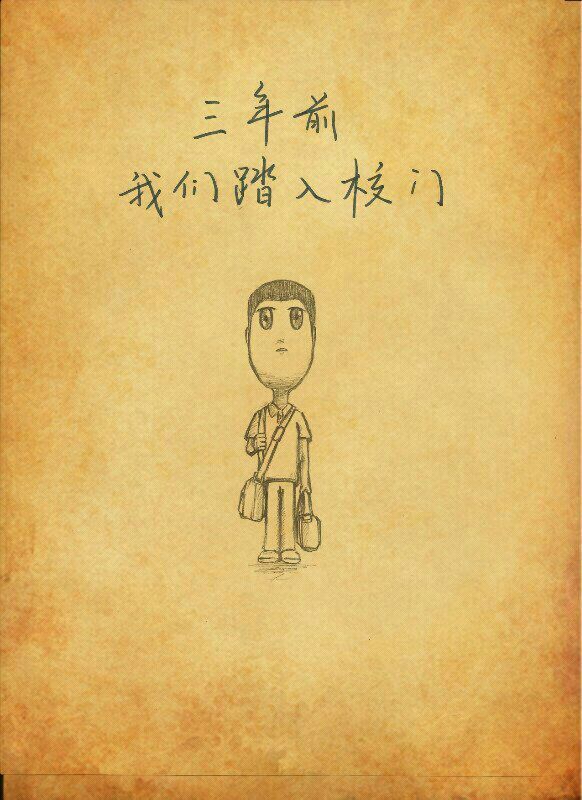 三年前
我们踏入校门